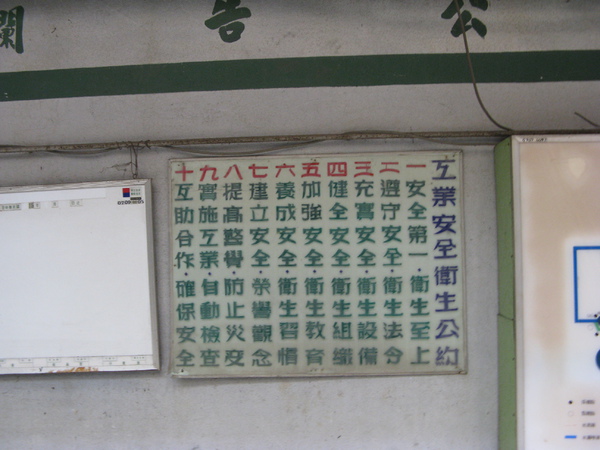 公告欄
工業安全衛生公約
一安全第一·衛生至上
二遵守安全·衛生法令
三充實安全·衛生設備
四健全安全·衛生組織
五加強安全·衛生教育
六養成安全·衛生習慣
七建立安全·榮譽觀念
八提高警覺·防止災變
九實施工業·自動檢查
十互助合作·確保安全